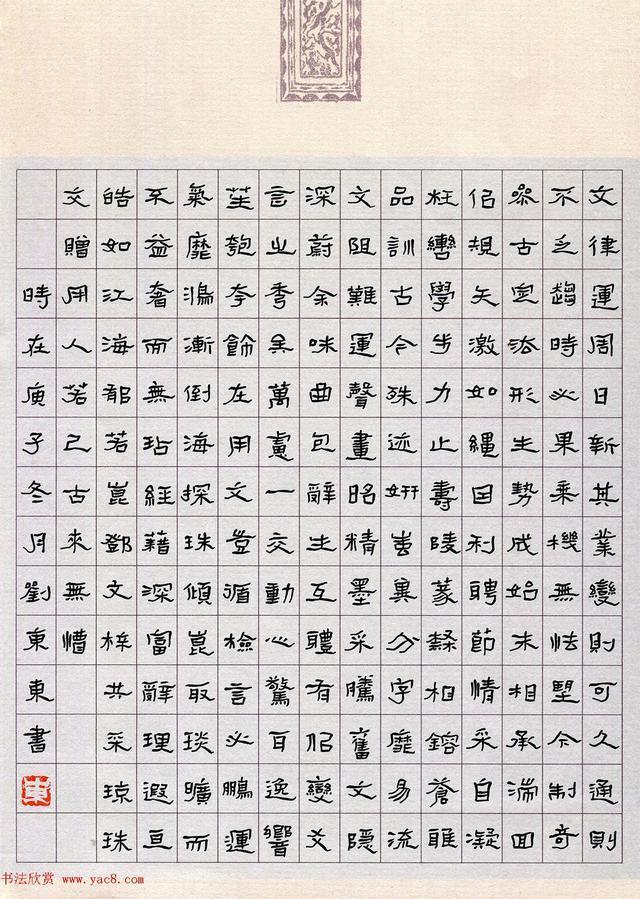 文律運周日新其業變則可久通則
不乏趨時必果乘機無怯望今制奇
參古定法形生勢成始末相承湍回
似規矢激如繩因利騁節情采自凝
枉轡學步力止壽陵篆隸相鎔蒼雅
品訓古今殊迹妍蚩異分字靡易流
文阻難運聲畫昭精墨采騰奮文隱
深蔚余味曲包辭生互體有似變爻
言之秀矣萬慮一交動心驚耳逸響
笙匏夸飾在用文豈循檢言必鵬運
氣靡鴻漸倒海探珠傾崑取琰曠而
不益奢而無玷經籍深富辭理遐亘
皓如江海郁若崑鄧文梓共采瓊珠
交贈用人若己古來無懵
時在庚子冬月劉東東書
東
书法欣赏 www.yac8.com